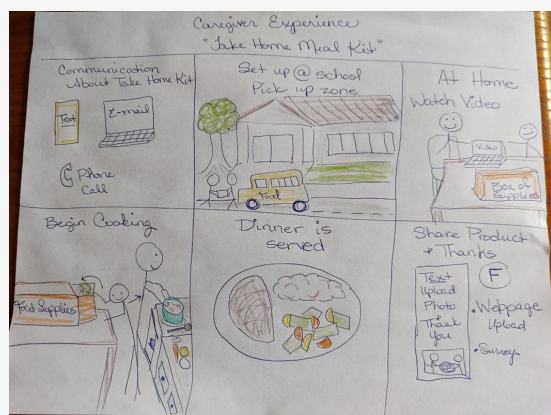 Caregiver Experience
"Take Home Meal Kit"
Communication
About Take Home Kit
Text
E-mail
Phone
Call
Set up @ school
Pick up zone
Food
At Home
Watch Video
Video
Box of
Supplies
Begin Cooking
Food Supplies
Dinner is
served
Share Product
+ Thanks
Text
Upload
Photo
+
Thank
You
F
• Webpage
Upload
• Survey